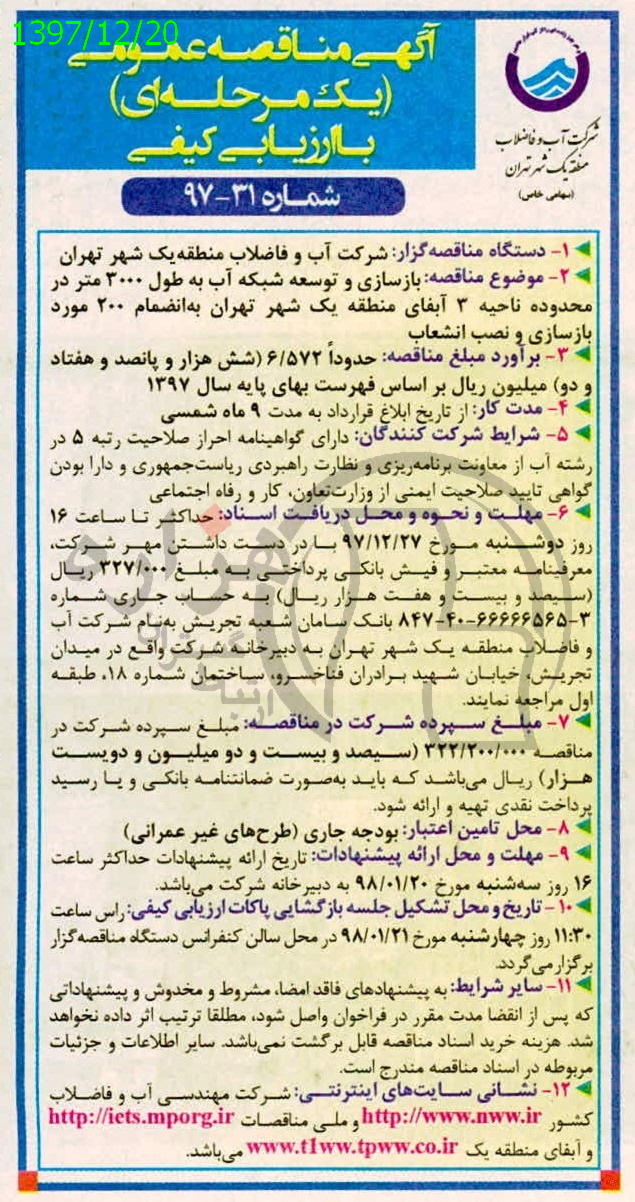 1397/12/20
آگهی مناقصه عمومی
(یک مرحله‌ای)
با ارزیابی کیفی
شماره ۳۱-۹۷
شرکت آب و فاضلاب
منطقه یک شهر تهران
(سهامی خاص)
۱- دستگاه مناقصه‌گزار: شرکت آب و فاضلاب منطقه‌یک شهر تهران
۲- موضوع مناقصه: بازسازی و توسعه شبکه آب به طول ۳۰۰۰ متر در
محدوده ناحیه ۳ آبفای منطقه یک شهر تهران به‌انضمام ۲۰۰ مورد
بازسازی و نصب انشعاب
۳- برآورد مبلغ مناقصه: حدوداً ۶/۵۷۲ (شش هزار و پانصد و هفتاد
و دو) میلیون ریال بر اساس فهرست بهای پایه سال ۱۳۹۷
۴- مدت کار: از تاریخ ابلاغ قرارداد به مدت ۹ ماه شمسی
۵- شرایط شرکت کنندگان: دارای گواهینامه احراز صلاحیت رتبه ۵ در
رشته آب از معاونت برنامه‌ریزی و نظارت راهبردی ریاست‌جمهوری و دارا بودن
گواهی تایید صلاحیت ایمنی از وزارت‌تعاون، کار و رفاه اجتماعی
۶- مهلت و نحوه و محل دریافت اسناد: حداکثر تا ساعت ۱۶
روز دوشنبه مورخ ۹۷/۱۲/۲۷ با در دست داشتن مهر شرکت،
معرفینامه معتبر و فیش بانکی پرداختی به مبلغ ۳۲۷/۰۰۰ ریال
(سیصد و بیست و هفت هزار ریال) به حساب جاری شماره
۸۴۷-۴۰-۶۶۶۶۶۵۶۵-۳ بانک سامان شعبه تجریش به‌نام شرکت آب
و فاضلاب منطقه یک شهر تهران به دبیرخانه شرکت واقع در میدان
تجریش، خیابان شهید برادران فناخسرو، ساختمان شماره ۱۸، طبقه
اول مراجعه نمایند.
۷- مبلغ سپرده شرکت در مناقصه: مبلغ سپرده شرکت در
مناقصه ۳۲۲/۲۰۰/۰۰۰ (سیصد و بیست و دو میلیون و دویست
هزار) ریال می‌باشد که باید به‌صورت ضمانتنامه بانکی و یا رسید
پرداخت نقدی تهیه و ارائه شود.
۸- محل تامین اعتبار: بودجه جاری (طرح‌های غیر عمرانی)
۹- مهلت و محل ارائه پیشنهادات: تاریخ ارائه پیشنهادات حداکثر ساعت
۱۶ روز سه‌شنبه مورخ ۹۸/۰۱/۲۰ به دبیرخانه شرکت می‌باشد.
۱۰- تاریخ و محل تشکیل جلسه بازگشایی پاکات ارزیابی کیفی: راس ساعت
۱۱:۳۰ روز چهارشنبه مورخ ۹۸/۰۱/۲۱ در محل سالن کنفرانس دستگاه مناقصه‌گزار
برگزار می‌گردد.
۱۱- سایر شرایط: به پیشنهادهای فاقد امضا، مشروط و مخدوش و پیشنهاداتی
که پس از انقضا مدت مقرر در فراخوان واصل شود، مطلقا ترتیب اثر داده نخواهد
شد. هزینه خرید اسناد مناقصه قابل برگشت نمی‌باشد. سایر اطلاعات و جزئیات
مربوطه در اسناد مناقصه مندرج است.
۱۲- نشانی سایت‌های اینترنتی: شرکت مهندسی آب و فاضلاب
کشور http://www.nww.ir و ملی مناقصات http://iets.mporg.ir
و آبفای منطقه یک www.t1ww.tpww.co.ir می‌باشد.